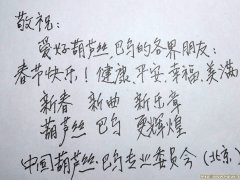 敬祝：
爱好葫芦丝巴乌的各界朋友：
春节快乐！健康、平安、幸福、美满
新春 新曲 新乐章
葫芦丝 巴乌 更辉煌
中国葫芦丝、巴乌专业委员会（北京）